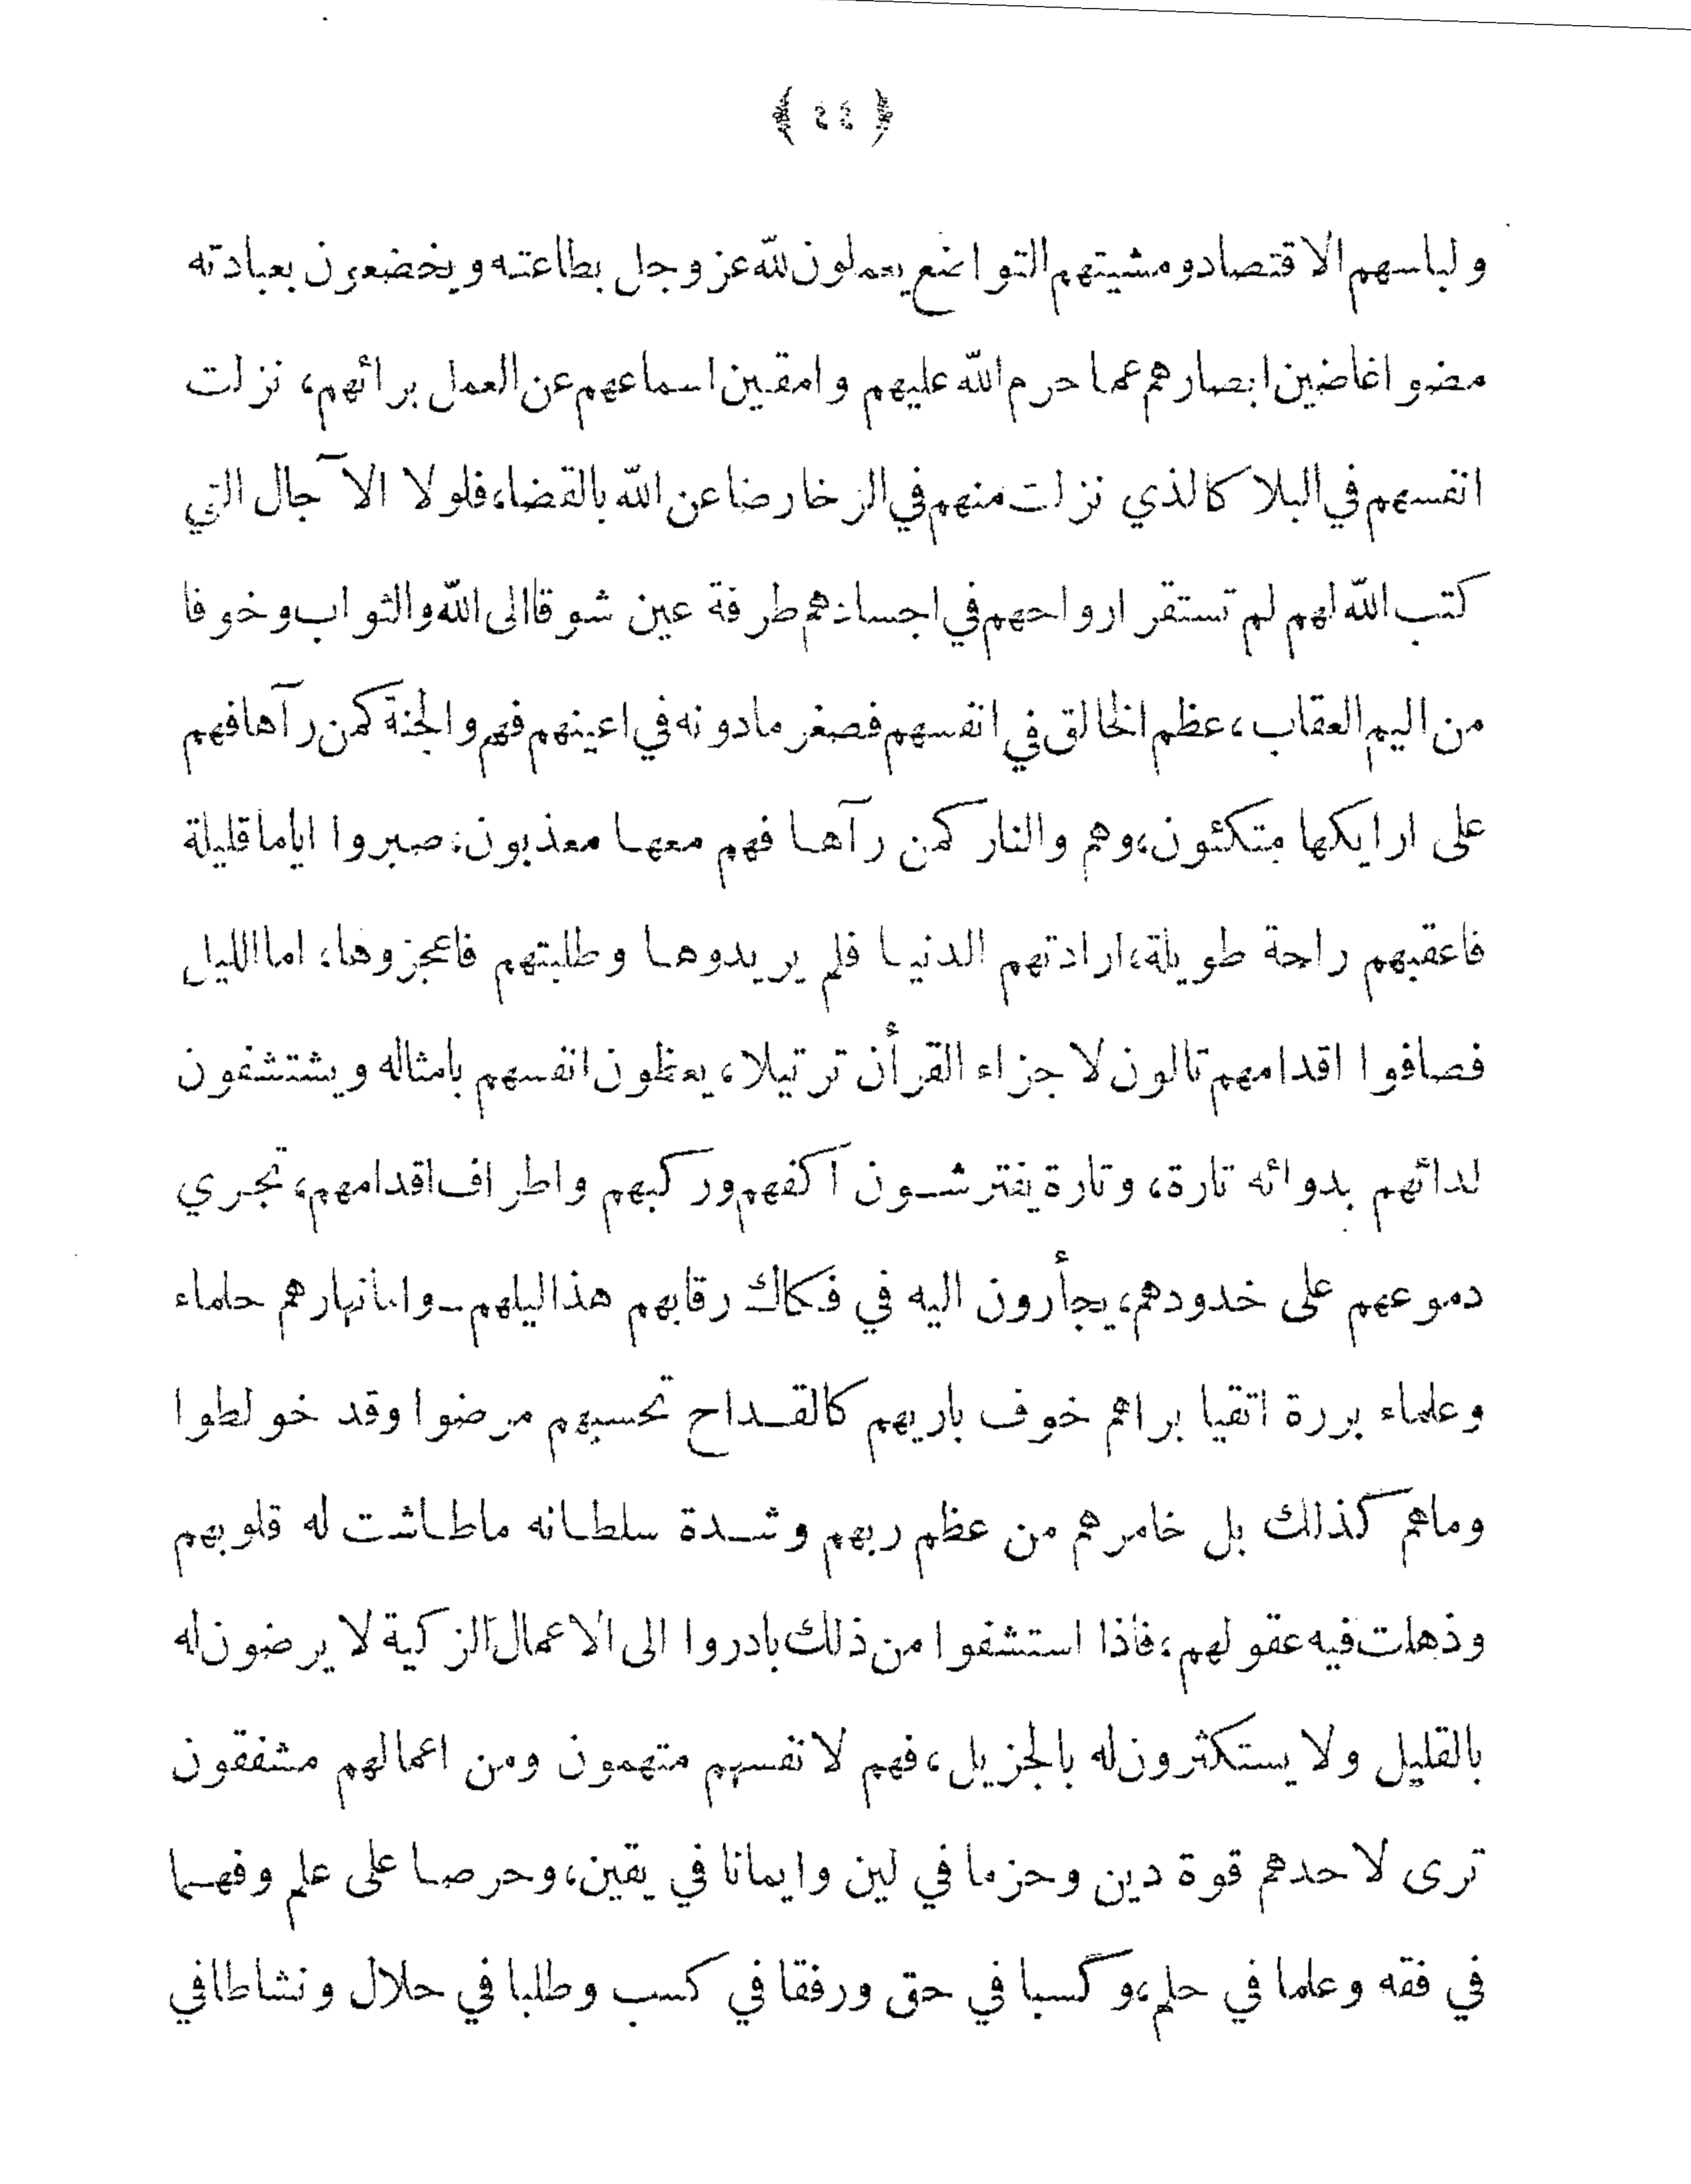 ﴿ ٤٤ ﴾
ولباسهم الاقتصاد ومشيتهم التواضع يعملون لله عز وجل بطاعته ويخضعون بعبادته
مضوا غاضين ابصارهم عما حرم الله عليهم وامقين اسماعهم عن العمل برائهم، نزلت
انفسهم في البلا كالذي نزلت منهم في الرخا رضا عن الله بالقضاء، فلولا الآجال التي
كتب الله لهم لم تستقر ارواحهم في اجسادهم طرفة عين شوقا الى الله والثواب وخوفا
من اليم العقاب، عظم الخالق في انفسهم فصغر مادونه في اعينهم فهم والجنة كمن رآها فهم
على ارايكها متكئون، وهم والنار كمن رآها فهم معها معذبون، صبروا اياما قليلة
فاعقبهم راحة طويلة، ارادتهم الدنيا فلم يريدوها وطلبتهم فاعجزوها، اما الليل
فصافوا اقدامهم تالون لاجزاء القرأن ترتيلا، يعظون انفسهم بامثاله ويشتشفون
لدائهم بدوائه تارة، وتارة يفترشون اكفهم وركبهم واطراف اقدامهم، تجري
دموعهم على خدودهم، يجأرون اليه في فكاك رقابهم هذا ليلهم ـ واما نهارهم حلماء
وعلماء بررة اتقيا براهم خوف باريهم كالقداح تحسبهم مرضوا وقد خولطوا
وماهم كذلك بل خامرهم من عظم ربهم وشدة سلطانه ماطاشت له قلوبهم
وذهلت فيه عقولهم، فاذا استشفوا من ذلك بادروا الى الاعمال الزكية لا يرضون له
بالقليل ولا يستكثرون له بالجزيل، فهم لانفسهم متهمون ومن اعمالهم مشفقون
ترى لاحدهم قوة دين وحزما في لين وايمانا في يقين، وحرصا على علم وفهما
في فقه وعلما في حلم، وكسبا في حق ورفقا في كسب وطلبا في حلال ونشاطا في